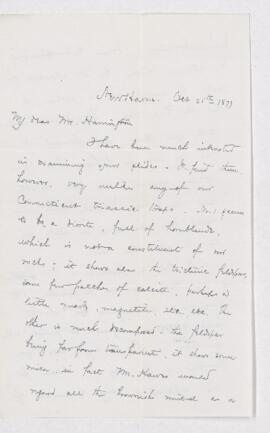 New Haven. Oct 25th 1877
My dear Mr. Harrington
I have been much interested
in examining your slides. I find them,
however, very unlike any of our
Connecticut triassic traps. No. 1 seems
to be a diorite, full of hornblende,
which is not a constituent of our
rocks; it shows also the triclinic feldspar,
some few patches of calcite, perhaps a
little quartz, magnetite, etc. etc. The
other is much decomposed - the feldspar
being far from transparent, it shows some
mica, in fact Mr. Hawes would
regard all the brownish mineral as a